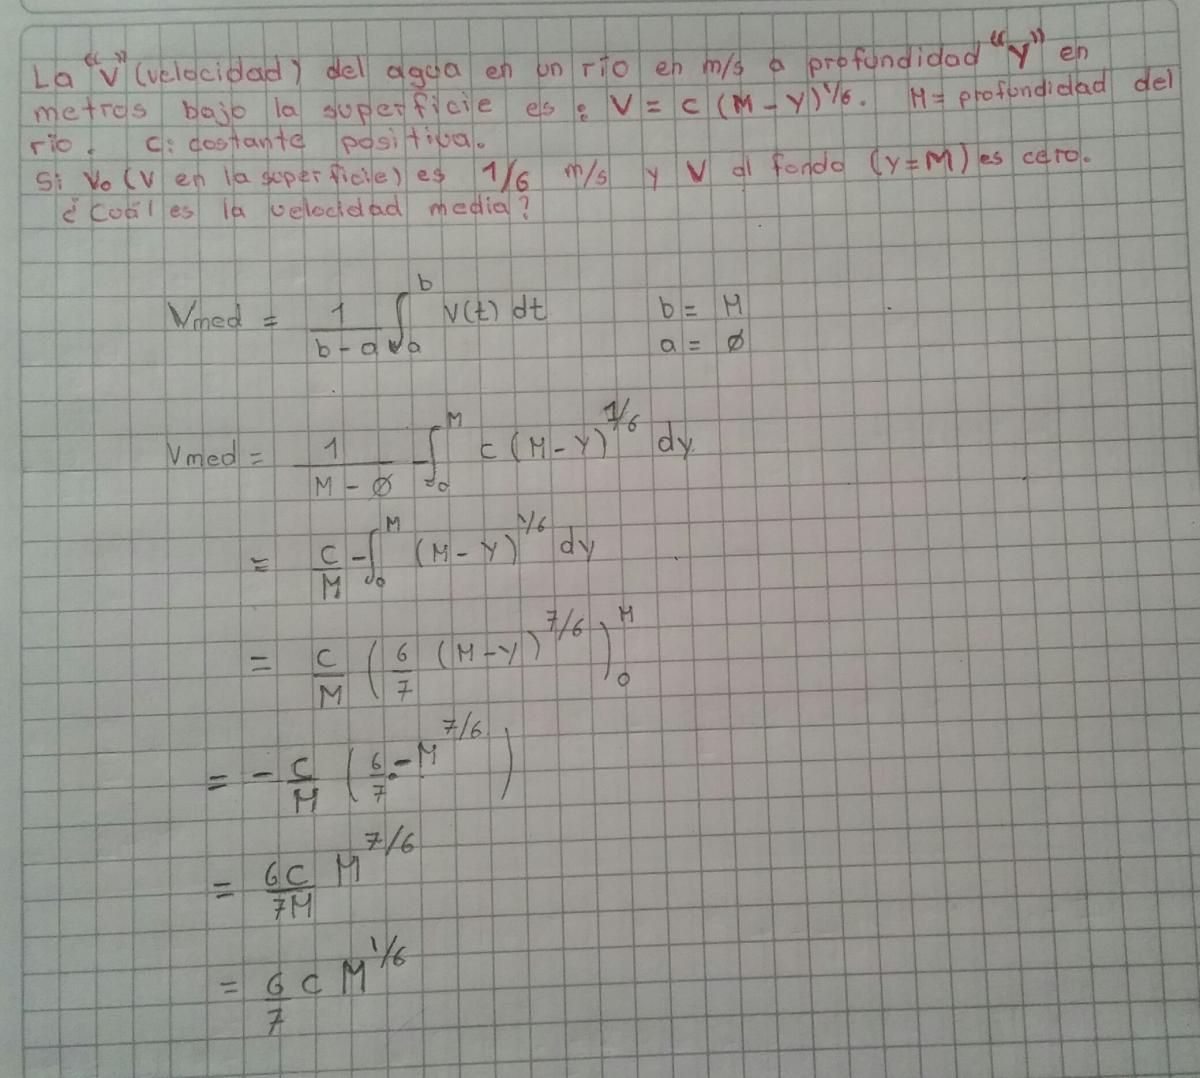 La "V" (velocidad) del agua en un río en m/s a profundidad "Y" en
metros bajo la superficie es: V = C (M - Y)^1/6. M = profundidad del
río. C: costante positiva.
Si Vo (V en la superficie) es 1/6 m/s y V al fondo (Y=M) es cero.
¿Cuál es la velocidad media?
Vmed = 1/(b-a) ∫_a^b V(t) dt b = M
a = Ø
Vmed = 1/(M - Ø) ∫_0^M C (M - Y)^1/6 dy
= C/M - ∫_0^M (M - Y)^1/6 dy
= C/M (6/7 (M - Y)^7/6)_0^M
= - C/M (6/7 · - M^7/6)
= 6C/7M M^7/6
= 6/7 C M^1/6